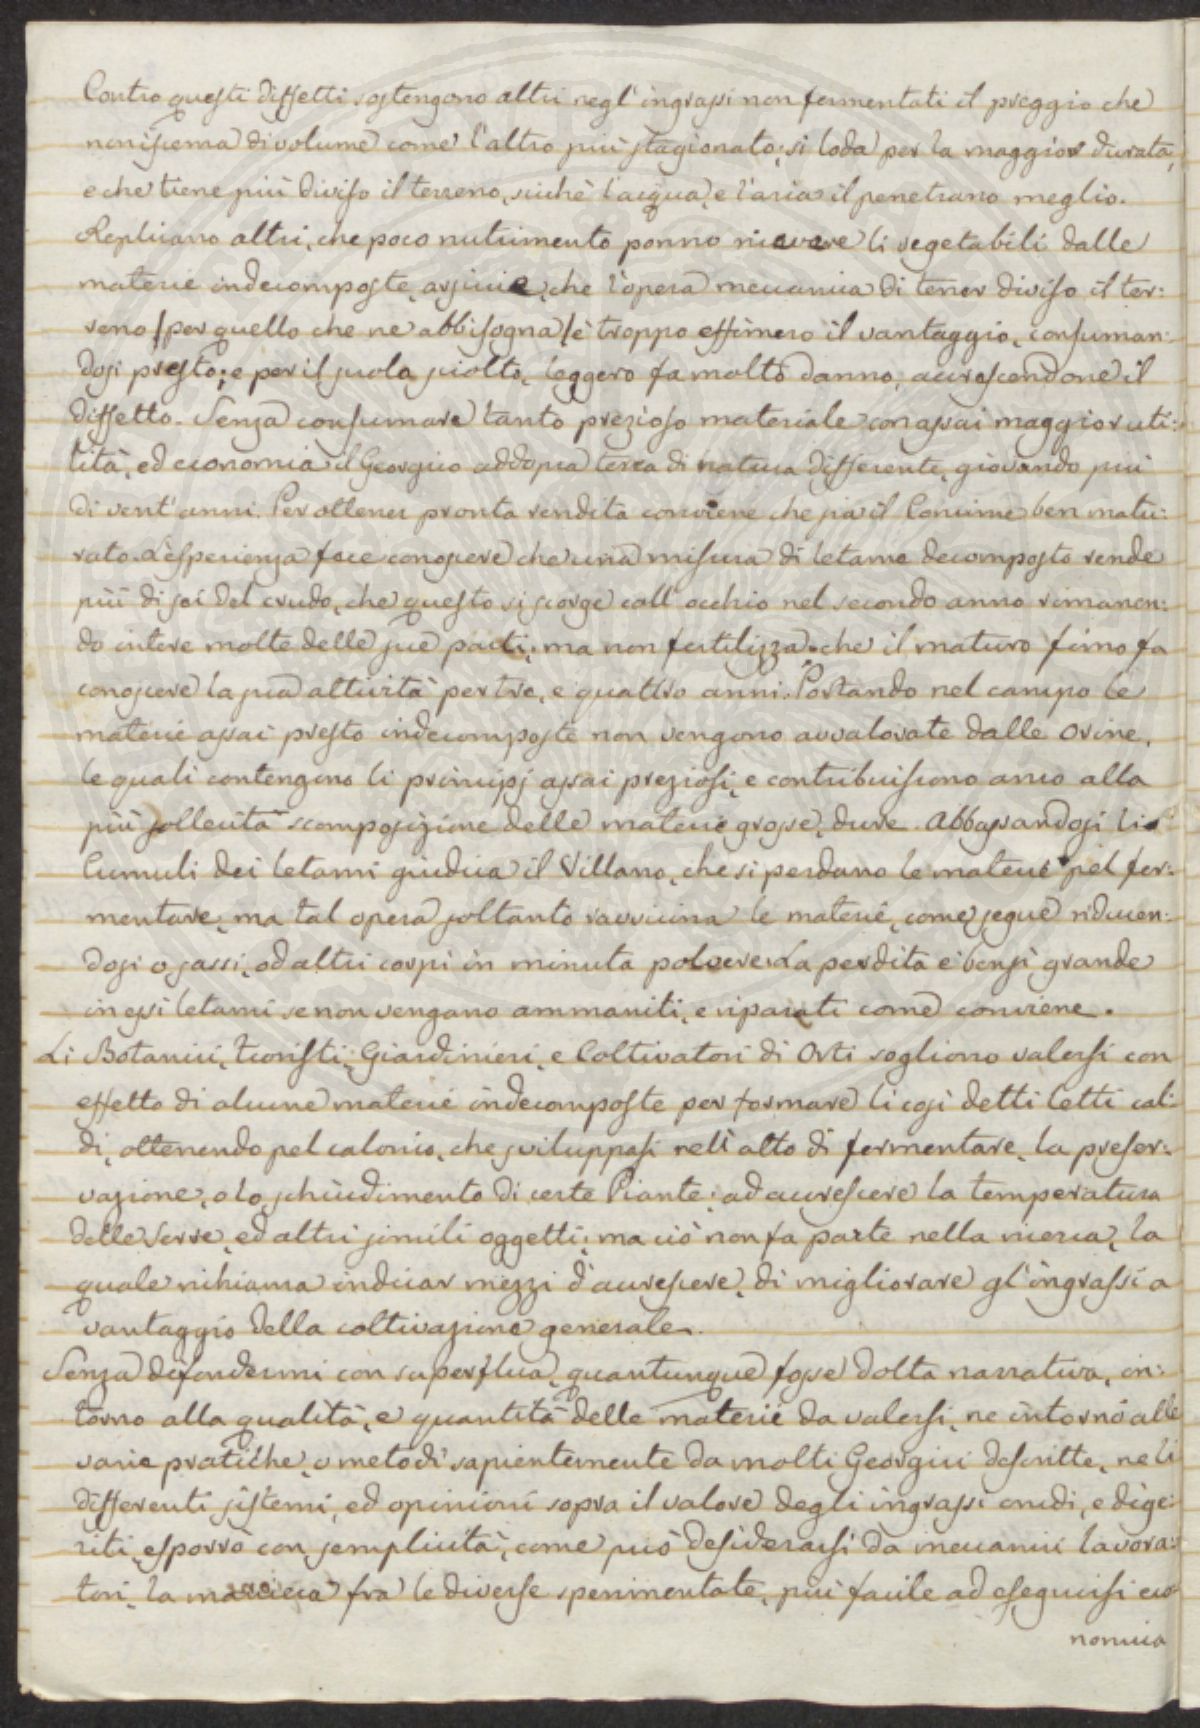 Contro questi diffetti sostengono altri negl'ingrassi non fermentati il preggio che
non iscema di volume come l'altro più stagionato; si loda per la maggior durata,
e che tiene più diviso il terreno, sichè l'acqua, e l'aria il penetrano meglio.
Replicano altri, che poco nutrimento ponno ricavare li vegetabili dalle
materie indecomposte, arsiccie, che l'opera meccanica di tener diviso il ter:
reno /per quello che ne abbisogna/ è troppo effimero il vantaggio, consuman:
dosi presto; e per il suolo sciolto, leggero fa molto danno, accrescendone il
diffetto. Senza consumare tanto prezioso materiale con assai maggior uti:
lità, ed economia il Georgico addopra terra di natura differente, giovando più
di vent'anni. Per ottener pronta rendita conviene che sia il Concime ben matu:
rato. L'esperienza fece conoscere che una misura di letame decomposto rende
più di sei del crudo, che questo si scorge coll'occhio nel secondo anno rimanen:
do intere molte delle sue parti; ma non fertilizza: che il maturo fimo fa
conoscere la sua attività per tre, e quattro anni. Portando nel campo le
materie assai presto indecomposte non vengono avvalorate dalle orine,
le quali contengono li principj assai preziosi, e contribuiscono anco alla
più sollecita scomposizione delle materie grosse, dure. Abbassandosi li
Cumuli dei letami giudica il Villano, che si perdano le materie pel fer:
mentare, ma tal opera soltanto ravvicina le materie, come segue riducen:
dosi o sassi, od altri corpi in minuta polvere. La perdita è bensì grande
in essi letami se non vengano ammaniti, e riparati come conviene.
Li Botanici, Fioristi, Giardinieri, e Coltivatori di Orti sogliono valersi con
effetto di alcune materie indecomposte per formare li così detti letti cal:
di, ottenendo pel calorico, che sviluppasi nell'atto di fermentare, la preser:
vazione, o lo schiudimento di certe Piante; ad accrescere la temperatura
delle serre, ed altri simili oggetti; ma ciò non fa parte nella ricerca, la
quale richiama indicar mezzi d'accrescere, di migliorare gl'ingrassi a
vantaggio della coltivazione generale.
Senza difondermi con superflua, quantunque fosse dotta narrativa, in:
torno alla qualità, e quantità delle materie da valersi, ne intorno alle
varie pratiche, o metodi sapientemente da molti Georgici descritte, ne li
differenti sistemi, ed opinioni sopra il valore degli ingrassi crudi, e dige:
riti, esporrò con semplicità, come può desiderarsi da meccanici lavora:
tori, la maniera fra le diverse sperimentate, più facile ad eseguirsi eco
nomica